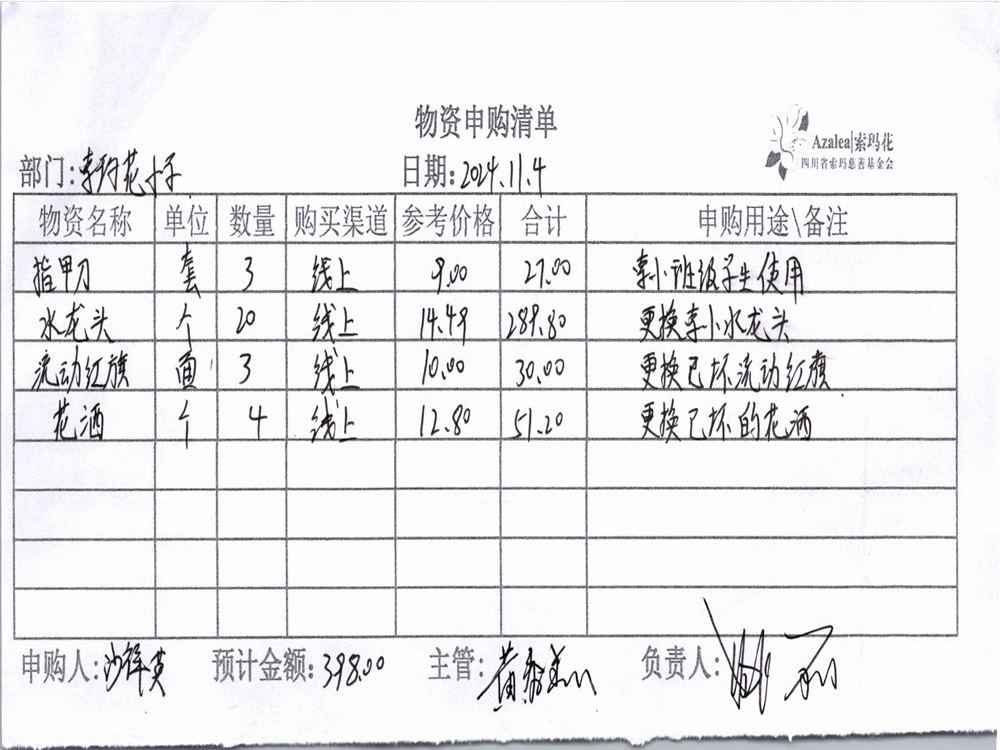 物资申购清单
Azalea|索玛花
四川省索玛慈善基金会
部门:索玛花小学 日期:2024.11.4
物资名称 单位 数量 购买渠道 参考价格 合计 申购用途\备注
指甲刀 套 3 线上 9.00 27.00 索小班级学生使用
水龙头 个 20 线上 14.49 289.80 更换索小水龙头
流动红旗 面 3 线上 10.00 30.00 更换已坏流动红旗
花洒 个 4 线上 12.80 51.20 更换已坏的花洒
申购人:沙祥英 预计金额:398.00 主管:黄 负责人: